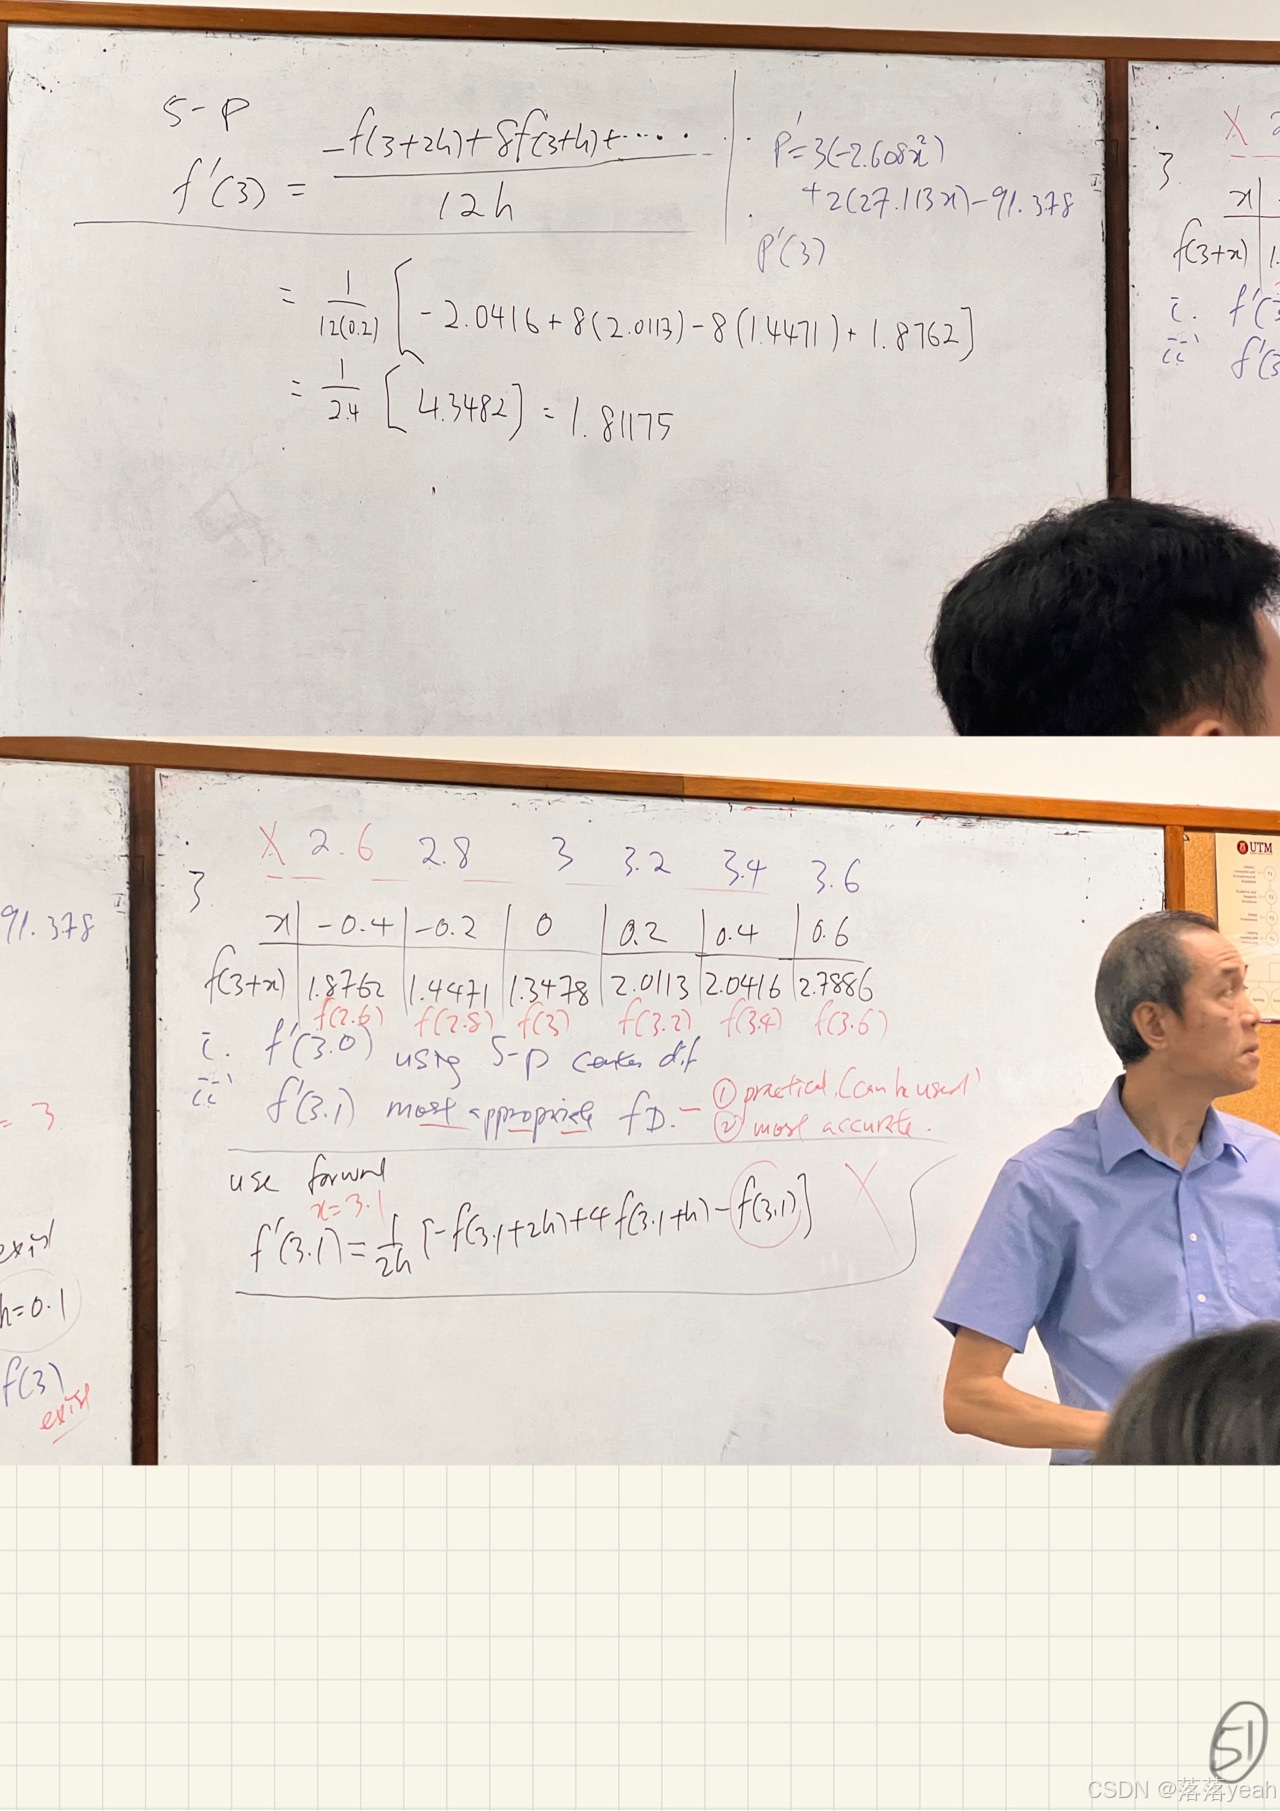 5-P
f'(3) = -f(3+2h)+8f(3+h)+.....
12h
= 1/12(0.2) [-2.0416+8(2.0113)-8(1.4471)+1.8762]
= 1/2.4 [4.3482] = 1.81175
P'=3(-2.608x²)
+2(27.113x)-91.378
P'(3)
X 2
3.
x
f(3+x) 1.
i. f'(3
ii f'(3
91.378
= 3
exist
h=0.1
f(3)
exist
X 2.6 2.8 3 3.2 3.4 3.6
3.
x -0.4 -0.2 0 0.2 0.4 0.6
f(3+x) 1.8762 1.4471 1.3478 2.0113 2.0416 2.7886
f(2.6) f(2.8) f(3) f(3.2) f(3.4) f(3.6)
i. f'(3.0) using 5-p center dif
ii f'(3.1) most appropriate fD. - ① practical (can be used)
② most accurate.
use forward
x=3.1
f'(3.1) = 1/2h [-f(3.1+2h)+4f(3.1+h)-f(3.1)] X
UTM
51
CSDN @落落yeah